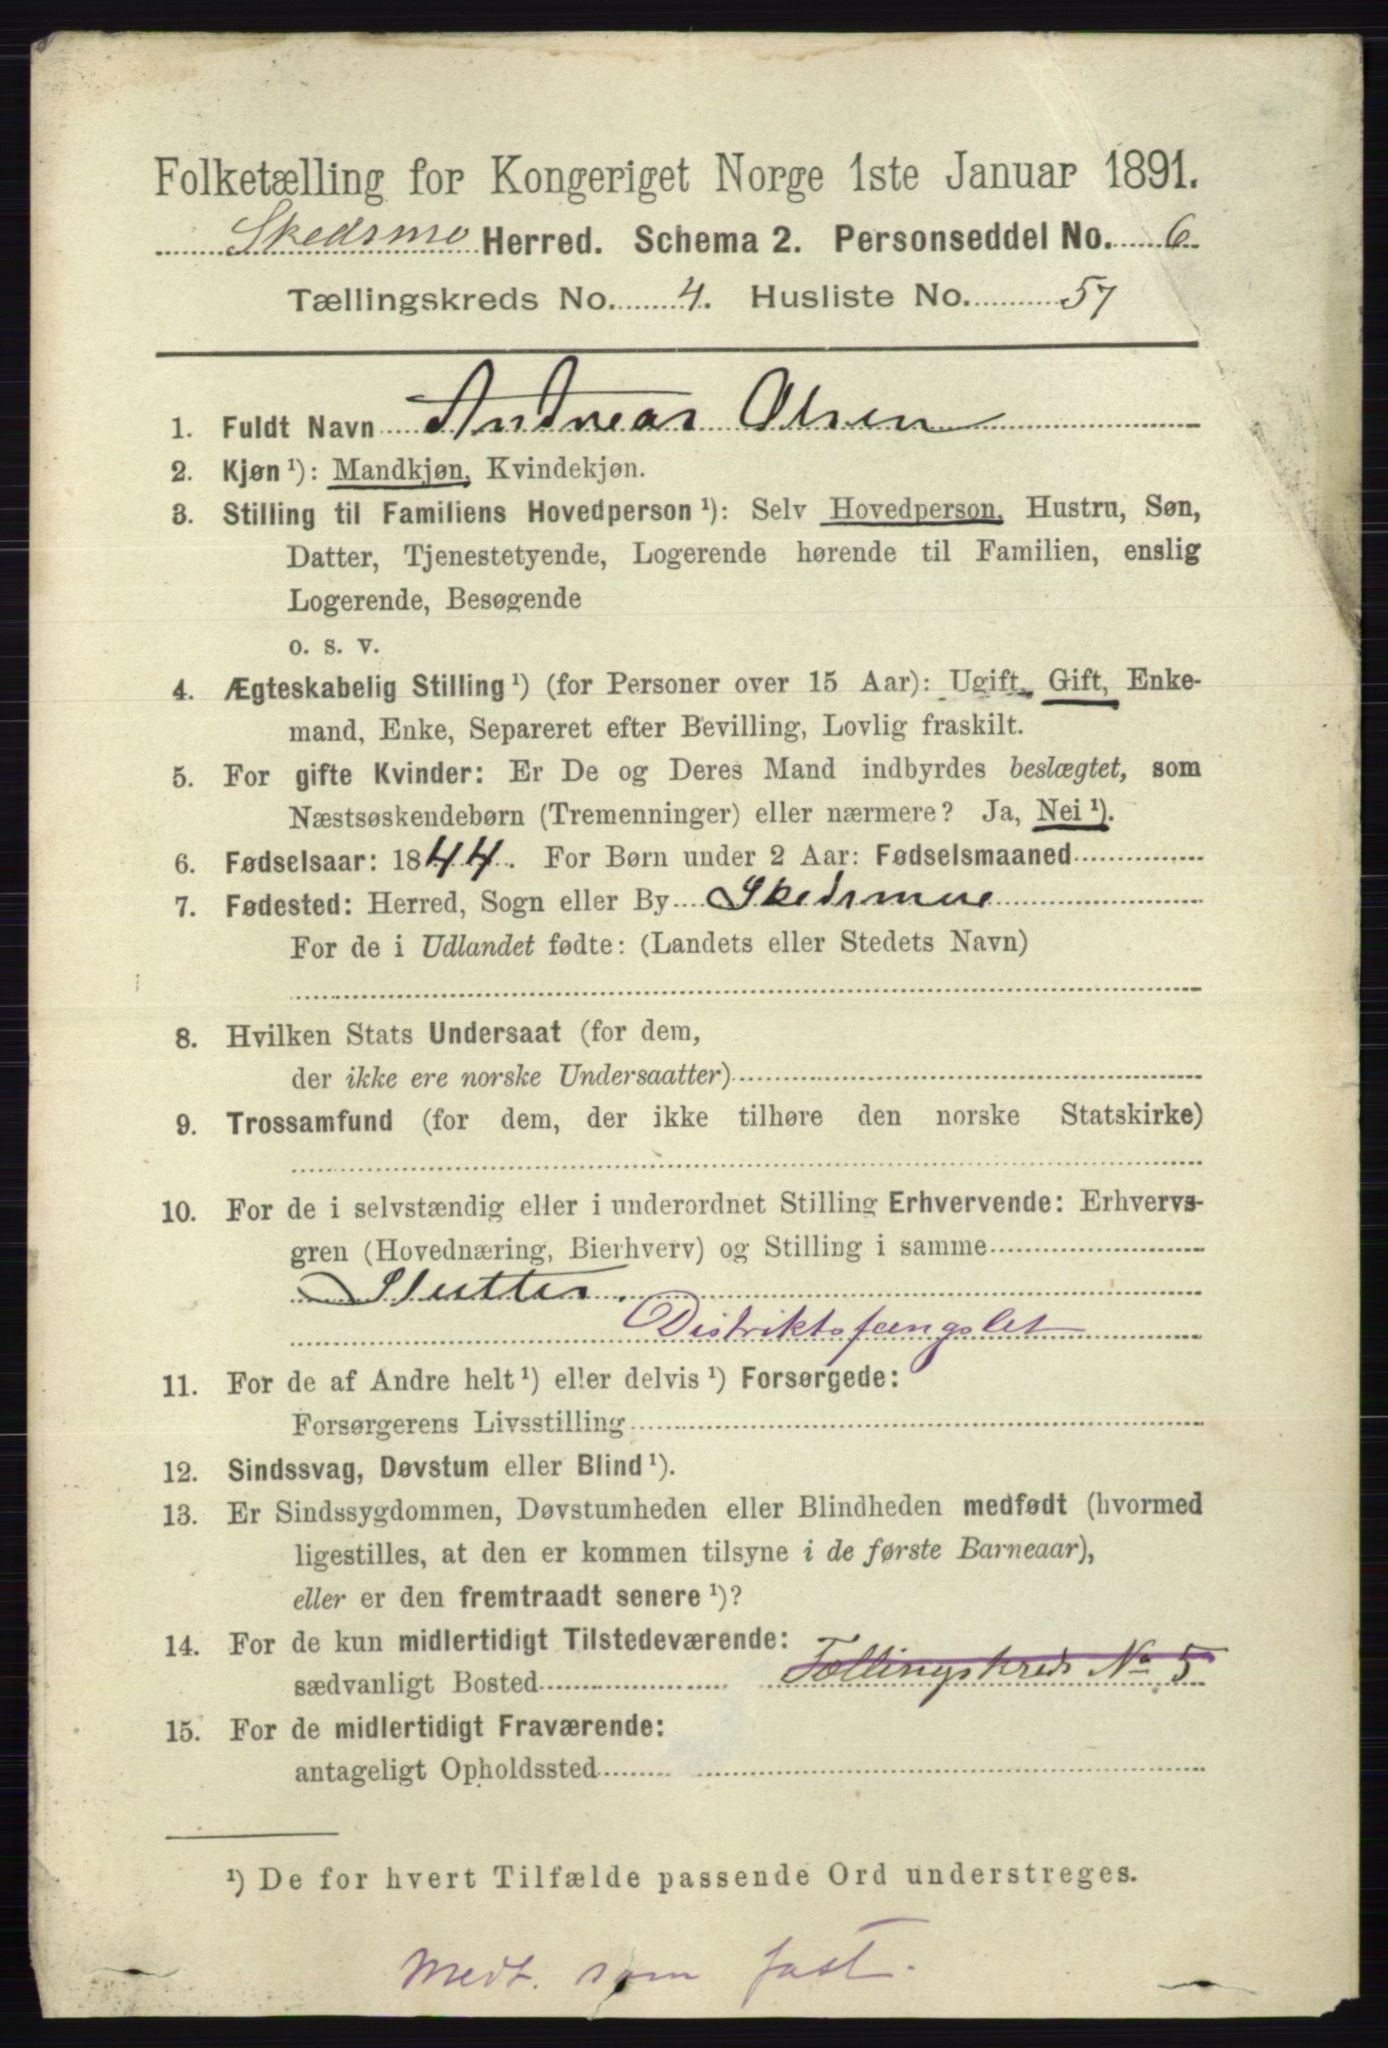 Folketælling for Kongeriget Norge 1ste Januar 1891.
Skedsmo Herred. Schema 2. Personseddel No. 6
Tællingskreds No. 4. Husliste No. 57
1. Fuldt Navn Andreas Olsen
2. Kjøn ¹): Mandkjøn, Kvindekjøn.
3. Stilling til Familiens Hovedperson ¹): Selv Hovedperson, Hustru, Søn,
Datter, Tjenestetyende, Logerende hørende til Familien, enslig
Logerende, Besøgende
o. s. v.
4. Ægteskabelig Stilling ¹) (for Personer over 15 Aar): Ugift, Gift, Enke-
mand, Enke, Separeret efter Bevilling, Lovlig fraskilt.
5. For gifte Kvinder: Er De og Deres Mand indbyrdes beslægtet, som
Næstsøskendebørn (Tremenninger) eller nærmere? Ja, Nei ¹).
6. Fødselsaar: 1844. For Børn under 2 Aar: Fødselsmaaned
7. Fødested: Herred, Sogn eller By Skedsmoe
For de i Udlandet fødte: (Landets eller Stedets Navn)
8. Hvilken Stats Undersaat (for dem,
der ikke ere norske Undersaatter)
9. Trossamfund (for dem, der ikke tilhøre den norske Statskirke)
10. For de i selvstændig eller i underordnet Stilling Erhvervende: Erhvervs-
gren (Hovednæring, Bierhverv) og Stilling i samme
Slutter.
Distriktsfængslet
11. For de af Andre helt ¹) eller delvis ¹) Forsørgede:
Forsørgerens Livsstilling
12. Sindssvag, Døvstum eller Blind ¹).
13. Er Sindssygdommen, Døvstumheden eller Blindheden medfødt (hvormed
ligestilles, at den er kommen tilsyne i de første Barneaar),
eller er den fremtraadt senere ¹)?
14. For de kun midlertidigt Tilstedeværende:
sædvanligt Bosted Tællingskreds No 5
15. For de midlertidigt Fraværende:
antageligt Opholdssted
¹) De for hvert Tilfælde passende Ord understreges.
Medt. som fast.